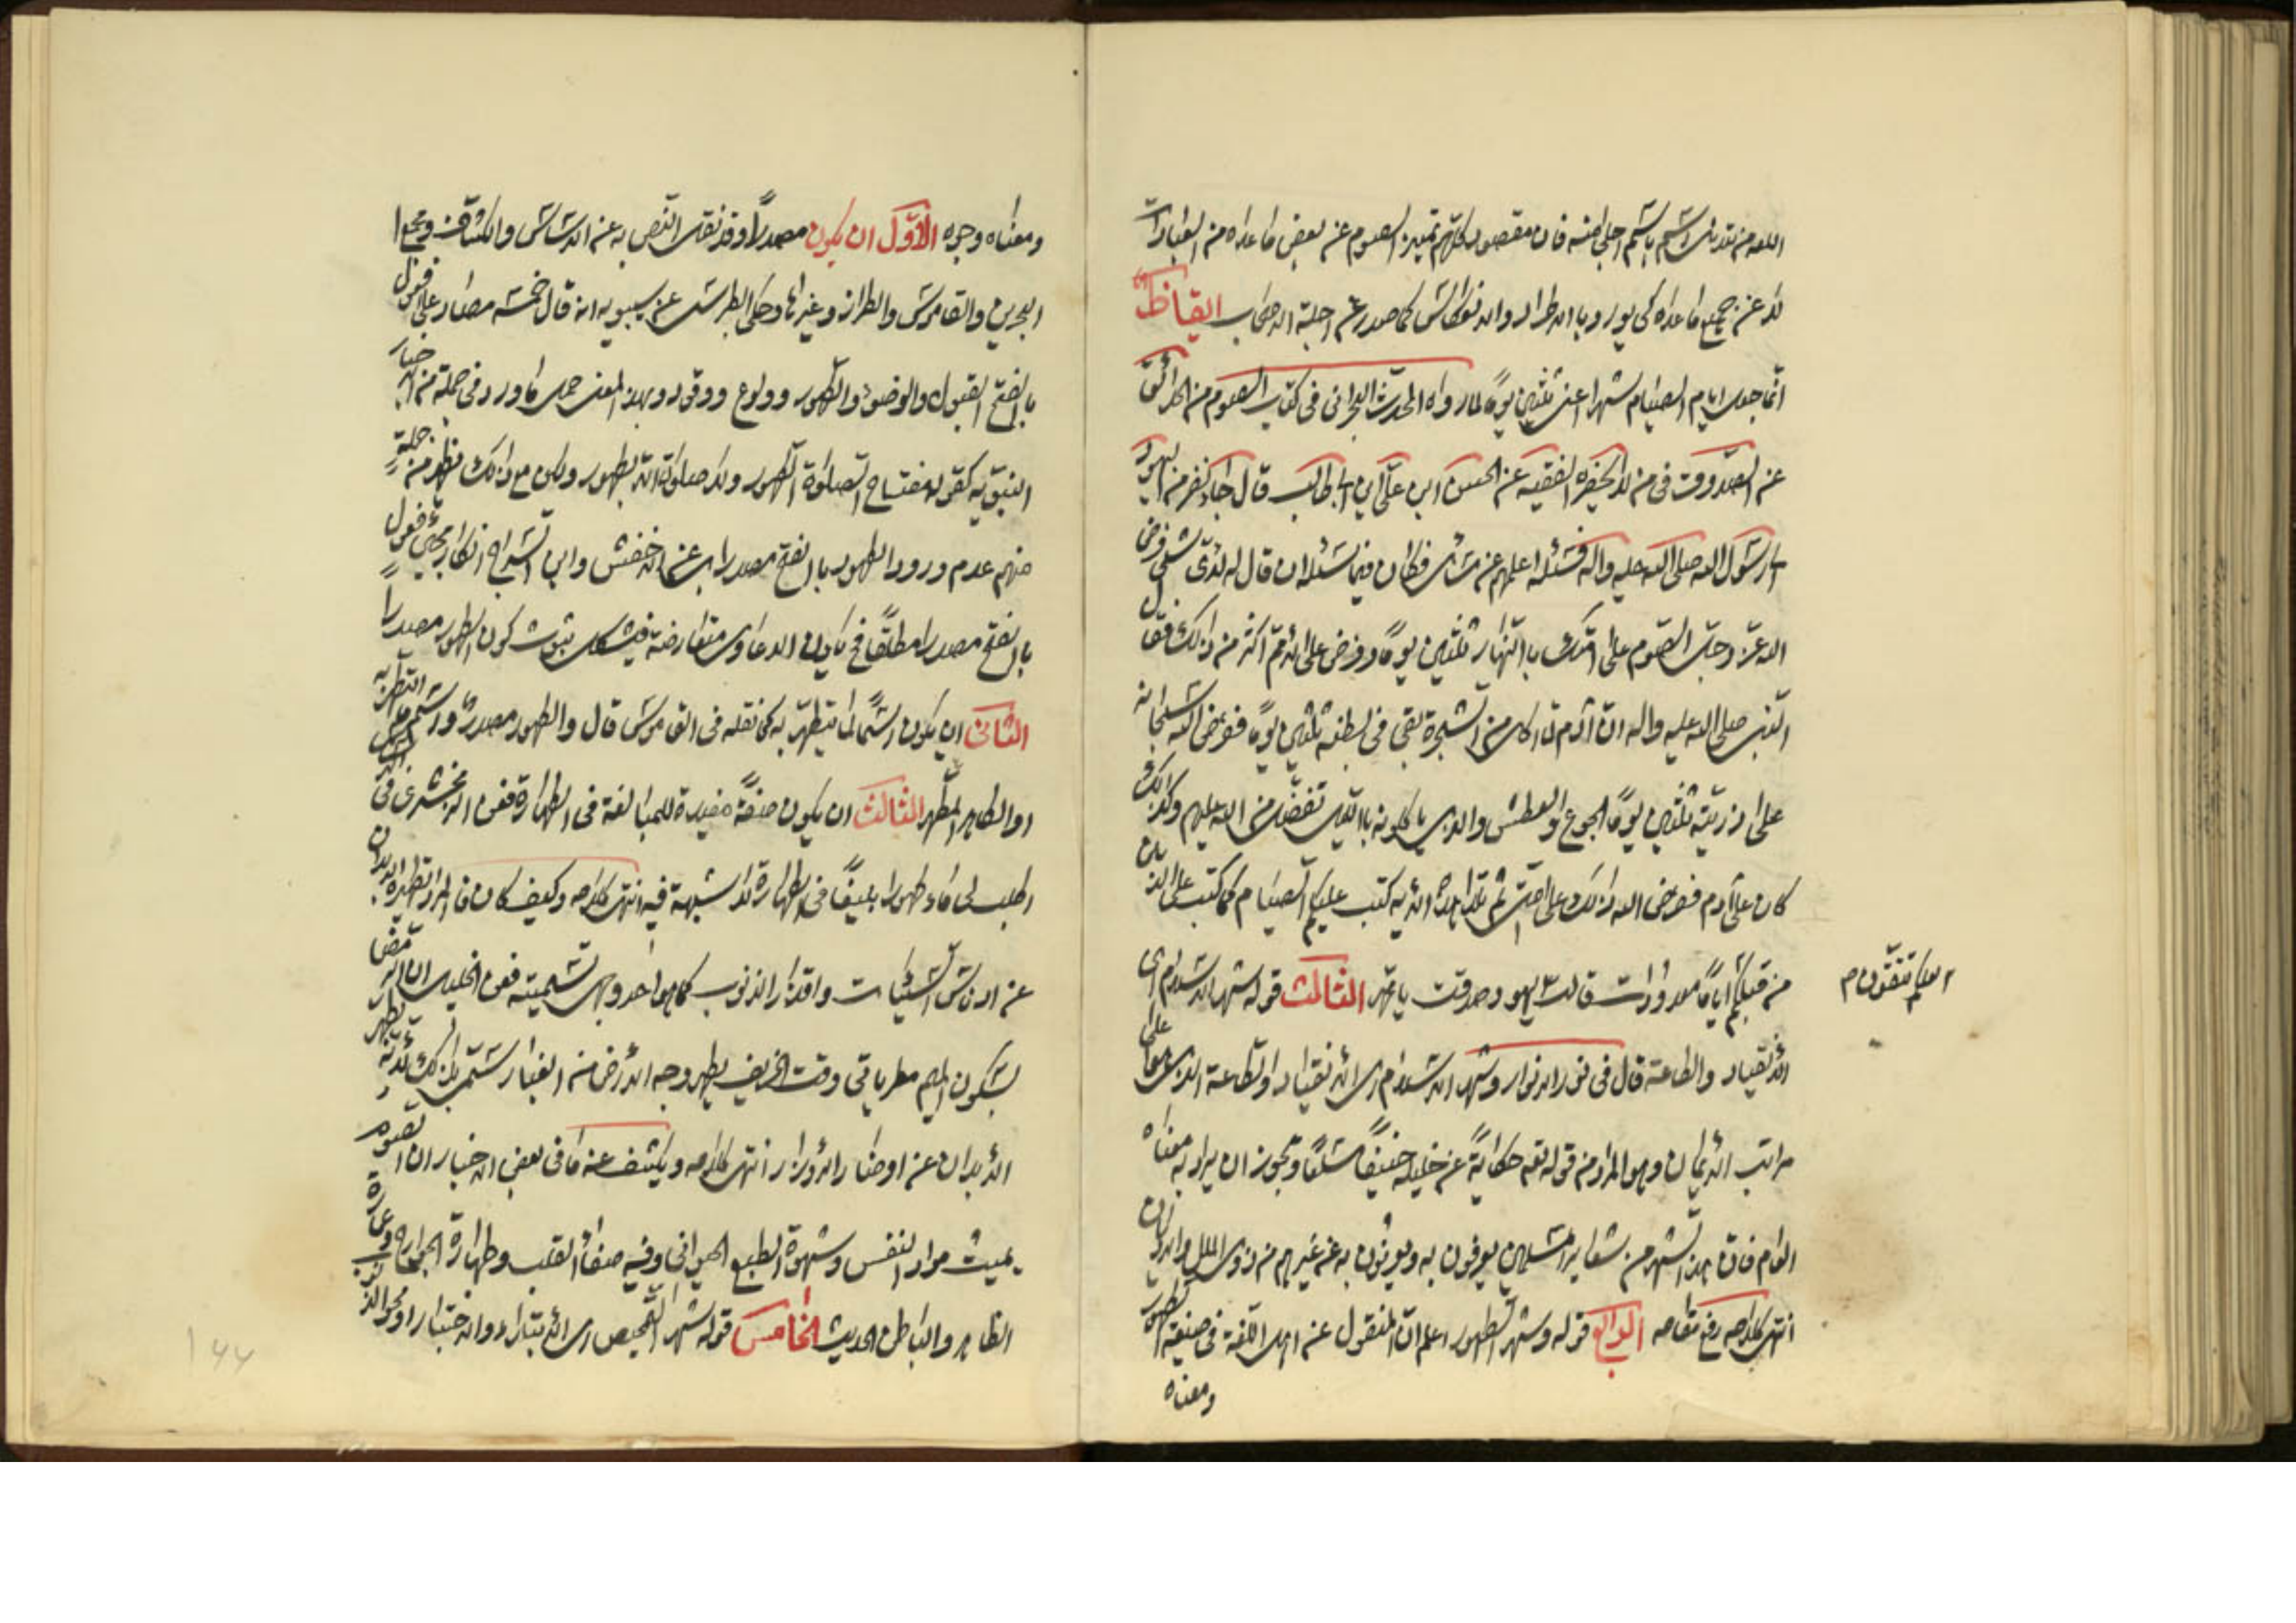 اللغه من تعريف اسم باسم اجلى منه فان مقصود كلهم تمييز الصوم عن بعض ما عداه من العبادات
لا عن جميع ما عداه كى يورد بالاطراد والانعكاس كما صدر عن اجلة الاصحاب ايقاظ
انما جعل ايام الصيام شهرا اعنى ثلثين يوما لما رواه المحدث البحرانى فى كتاب الصوم من الحدائق
عن الصدوق فى من لا يحضره الفقيه عن الحسن ابن على ابن ابى طالب قال جاء نفر من اليهود
الى رسول الله صلى الله عليه واله فسئله اعلمهم عن مسائل فكان فيما سئله ان قال له لاى شئ فرض
الله عز وجل الصوم على امتك بالنهار ثلثين يوما وفرض على الامم اكثر من ذلك فقال
النبى صلى الله عليه واله ان آدم لما اكل من الشجرة بقى فى بطنه ثلثين يوما ففرض الله سبحانه
على ذريته ثلثين يوما الجوع والعطش والذى ياكلونه بالليل تفضل من الله عليهم وكذلك
كان على آدم ففرض الله ذلك على امتى ثم تلا هذه الاية كتب عليكم الصيام كما كتب على الذين
من قبلكم اياما معدودات قال اليهود صدقت يا محمد الثالث قوله شهر الاسلام اى
لعلكم تتقون م
الانقياد والطاعة قال فى نور الانوار وشهر الاسلام اى الانقياد والطاعة الذى هو اعلى
مراتب الايمان وهو المراد من قوله تعم حكاية عن خليله حنيفا مسلما ويجوز ان يراد به معناه
العام فان هذا الشهر من شعاير المسلمين يعرفون به ويميزون به عن غيرهم من ذوى الملل والاديان
انتهى كلامه رفع مقامه الرابع قوله وشهر الطهور اعلم ان المنقول عن اهل اللغة فى صيغة الطهور
ومعناه
ومعناه وجوه الاول ان يكون مصدرا وقد نقل النص به عن الاساس والكشاف ومجمع
البحرين والقاموس والطراز وغيرها وحكى الطبرسى عن سيبويه انه قال خمسة مصادر على فعول
بالفتح القبول والوضوء والطهور وولوع ووقود وبهذا المعنى حمل ما ورد فى جملة من الاخبار
النبوية كقوله مفتاح الصلوة الطهور ولا صلوة الا بطهور ولكن مع ذلك يظهر من جملة
منهم عدم ورود الطهور بالفتح مصدرا بل عن الاخفش وابن السراج انكار مجيئ فعول
بالفتح مصدرا مطلقا فح يكون الدعاوى متعارضة فيشكل ثبوت كون الطهور مصدرا
الثانى ان يكون اسما لما يتطهر به كما نقله فى القاموس قال والطهور مصدر واسم ما يتطهر به
او الطاهر المطهر الثالث ان يكون صفة مفيدة للمبالغة فى الطهارة فعن الزمخشرى فى
اطلب لى ماء طهورا بليغا فى الطهارة لا شبهة فيه انتهى كلامه وكيف كان فالمراد تطهيره الابدان
عن ادناس السيئات واقذار الذنوب كما هو احد وجهى تسميته فعن الخليل ان الرمضا
بسكون الميم مطر ياتى وقت الخريف يطهر وجه الارض من الغبار سمى بذلك لانه يطهر
الابدان عن اوضار الاوزار انتهى كلامه ويكشف عنه ما فى بعض الاخبار ان الصوم
يميت مراد النفس وشهوة الطبع الحيوانى وفيه صفاء القلب وطهارة الجوارح وعمارة
الظاهر والباطن الحديث الخامس قوله شهر التمحيص اى الابتلاء والاختبار او محو الذنوب